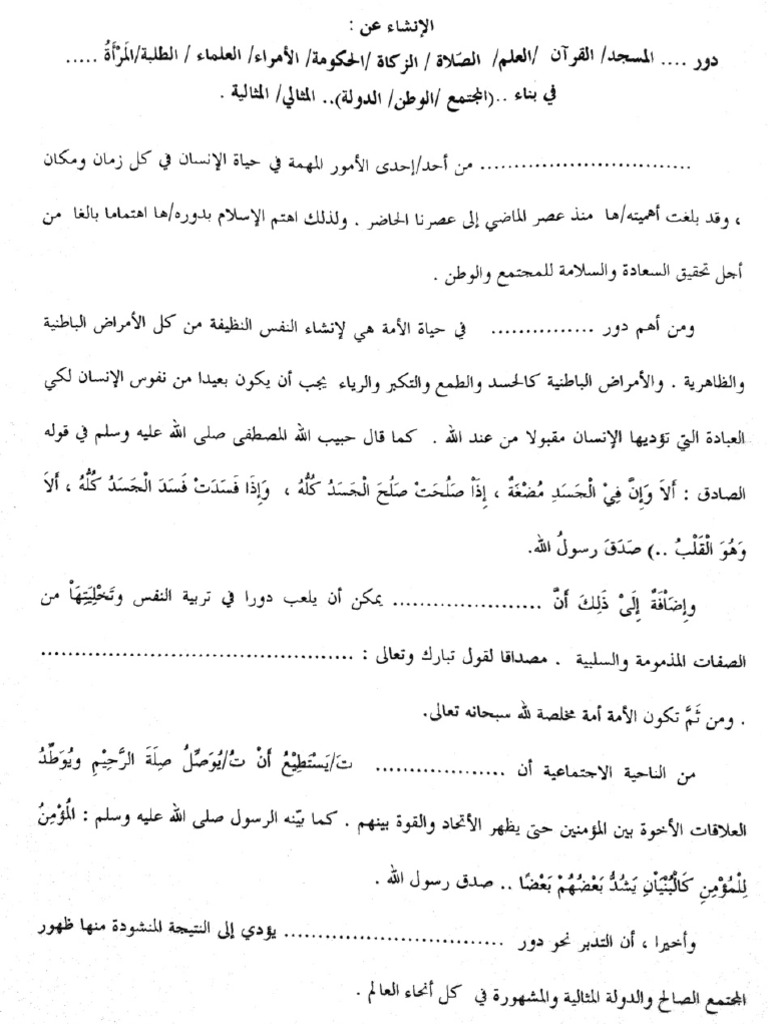 الإنشاء عن :
دور .... المسجد/ القرآن /العلم/ الصّلاة / الزكاة /الحكومة/ الأمراء/ العلماء / الطلبة/المَرْأَةُ .....
في بناء ..(المجتمع /الوطن/ الدولة).. المثالي/ المثالية .
............................... من أحد/إحدى الأمور المهمة في حياة الإنسان في كل زمان ومكان
، وقد بلغت أهميته/ها منذ عصر الماضي إلى عصرنا الحاضر . ولذلك اهتم الإسلام بدوره/ها اهتماما بالغا من
أجل تحقيق السعادة والسلامة للمجتمع والوطن .
ومن أهم دور ............... في حياة الأمة هي لإنشاء النفس النظيفة من كل الأمراض الباطنية
والظاهرية . والأمراض الباطنية كالحسد والطمع والتكبر والرياء يجب أن يكون بعيدا من نفوس الإنسان لكي
العبادة التي تؤديها الإنسان مقبولا من عند الله . كما قال حبيب الله المصطفى صلى الله عليه وسلم في قوله
الصادق : أَلاَ وَإِنَّ فِيْ الْجَسَدِ مُضْغَةٌ ، إِذَاْ صَلُحَتْ صَلُحَ الْجَسَدُ كُلُّهُ ، وَإِذَا فَسَدَتْ فَسَدَ الْجَسَدُ كُلُّهُ ، أَلاَ
وَهُوَ الْقَلْبُ ..) صَدَقَ رسولُ الله.
وإِضَاْفَةٌ إِلَىْ ذَلِكَ أَنَّ ...................... يمكن أن يلعب دورا في تربية النفس وتَخْلِيَتِهَاْ من
الصفات المذمومة والسلبية . مصداقا لقول تبارك وتعالى : ...............................................
. ومن ثَمَّ تكون الأمة أمة مخلصة لله سبحانه تعالى.
من الناحية الاجتماعية أن .................... تَ/يَسْتَطِيْعُ أَنْ تُ/يُوَصِّلُ صِلَةَ الرَّحِيْمِ ويُوَطِّدُ
العلاقات الأخوة بين المؤمنين حتى يظهر الأتحاد والقوة بينهم . كما بيّنه الرسول صلى الله عليه وسلم : الْمُؤْمِنُ
لِلْمُؤْمِنِ كَالْبُنْيَاْنِ يَشُدُّ بَعْضُهُمْ بَعْضًا .. صدق رسول الله .
وأخيرا ، أن التدبر نحو دور ................................. يؤدي إلى النتيجة المنشودة منها ظهور
المجتمع الصالح والدولة المثالية والمشهورة في كل أنحاء العالم .